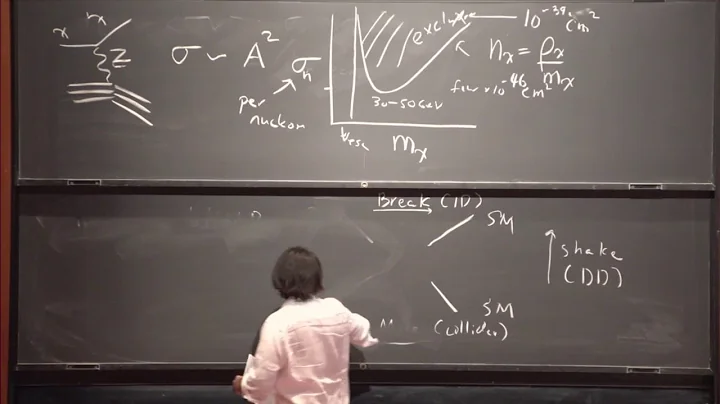 x
rx
Z
σ ~ A² σn
per
nucleon
exclu
10⁻³⁹ cm²
nx = ρx / mx
few x 10⁻⁴⁶ cm²
30-50 GeV
vesc
mx
Break (ID)
SM
shake
(DD)
SM
(collider)